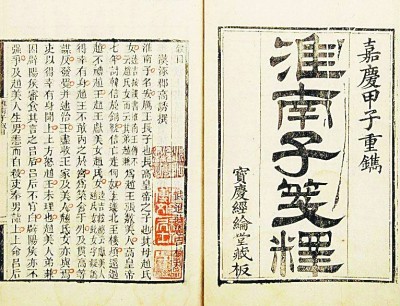 嘉慶甲子重鐫
淮南子箋釋
寶慶經綸堂藏板
敘目
漢涿郡高誘撰
淮南子名安厲王長子也長高皇帝之子也其母趙氏
女為趙王張敖美人高皇帝
七年討韓信於銅鞮信亡走匈奴上遂北至樓煩還過
趙不禮趙王趙王獻美女趙氏女得
幸有身趙王不敢內之於宮為築舍于外及貫高等
謀反發覺并逮治王盡收王家及美人趙氏女亦與焉
吏以得幸有身聞上上方怒趙王未理也趙美人弟兼
因辟陽侯審食其言之呂后呂后不肯白辟陽侯亦不
強爭及趙美人生男恚而自殺吏奉男詣上上命呂后